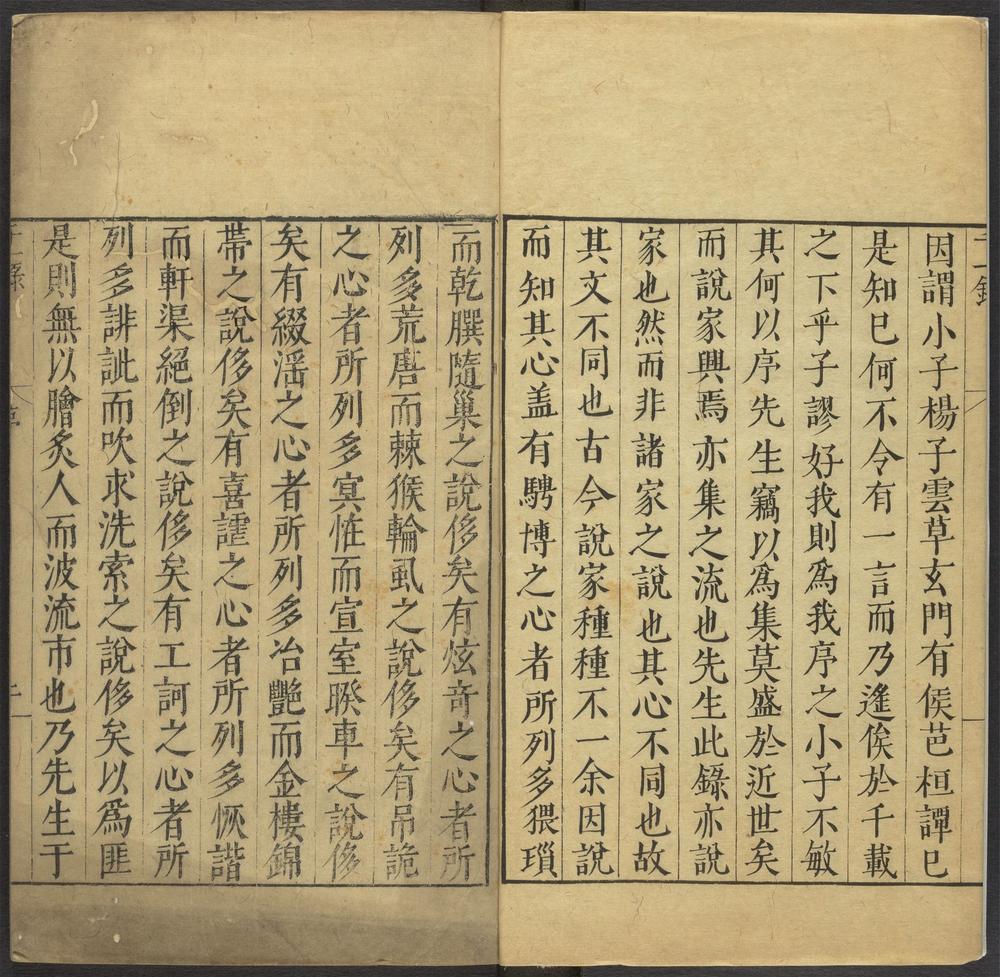 因謂小子楊子雲草玄門有侯芭桓譚已
是知已何不令有一言而乃遙俟於千載
之下乎子謬好我則爲我序之小子不敏
其何以序先生竊以爲集莫盛於近世矣
而說家興焉亦集之流也先生此錄亦說
家也然而非諸家之說也其心不同也故
其文不同也古今說家種種不一余因說
而知其心盖有騁博之心者所列多猥瑣
而乾饌隨巢之說侈矣有炫竒之心者所
列多荒唐而棘猴輪虱之說侈矣有吊詭
之心者所列多寘惟而宣室睽車之說侈
矣有綴滛之心者所列多冶艷而金樓錦
帶之說侈矣有喜謔之心者所列多恢諧
而軒渠絕倒之說侈矣有工訶之心者所
列多誹訿而吹求洗索之說侈矣以爲匪
是則無以膾炙人而波流市也乃先生于